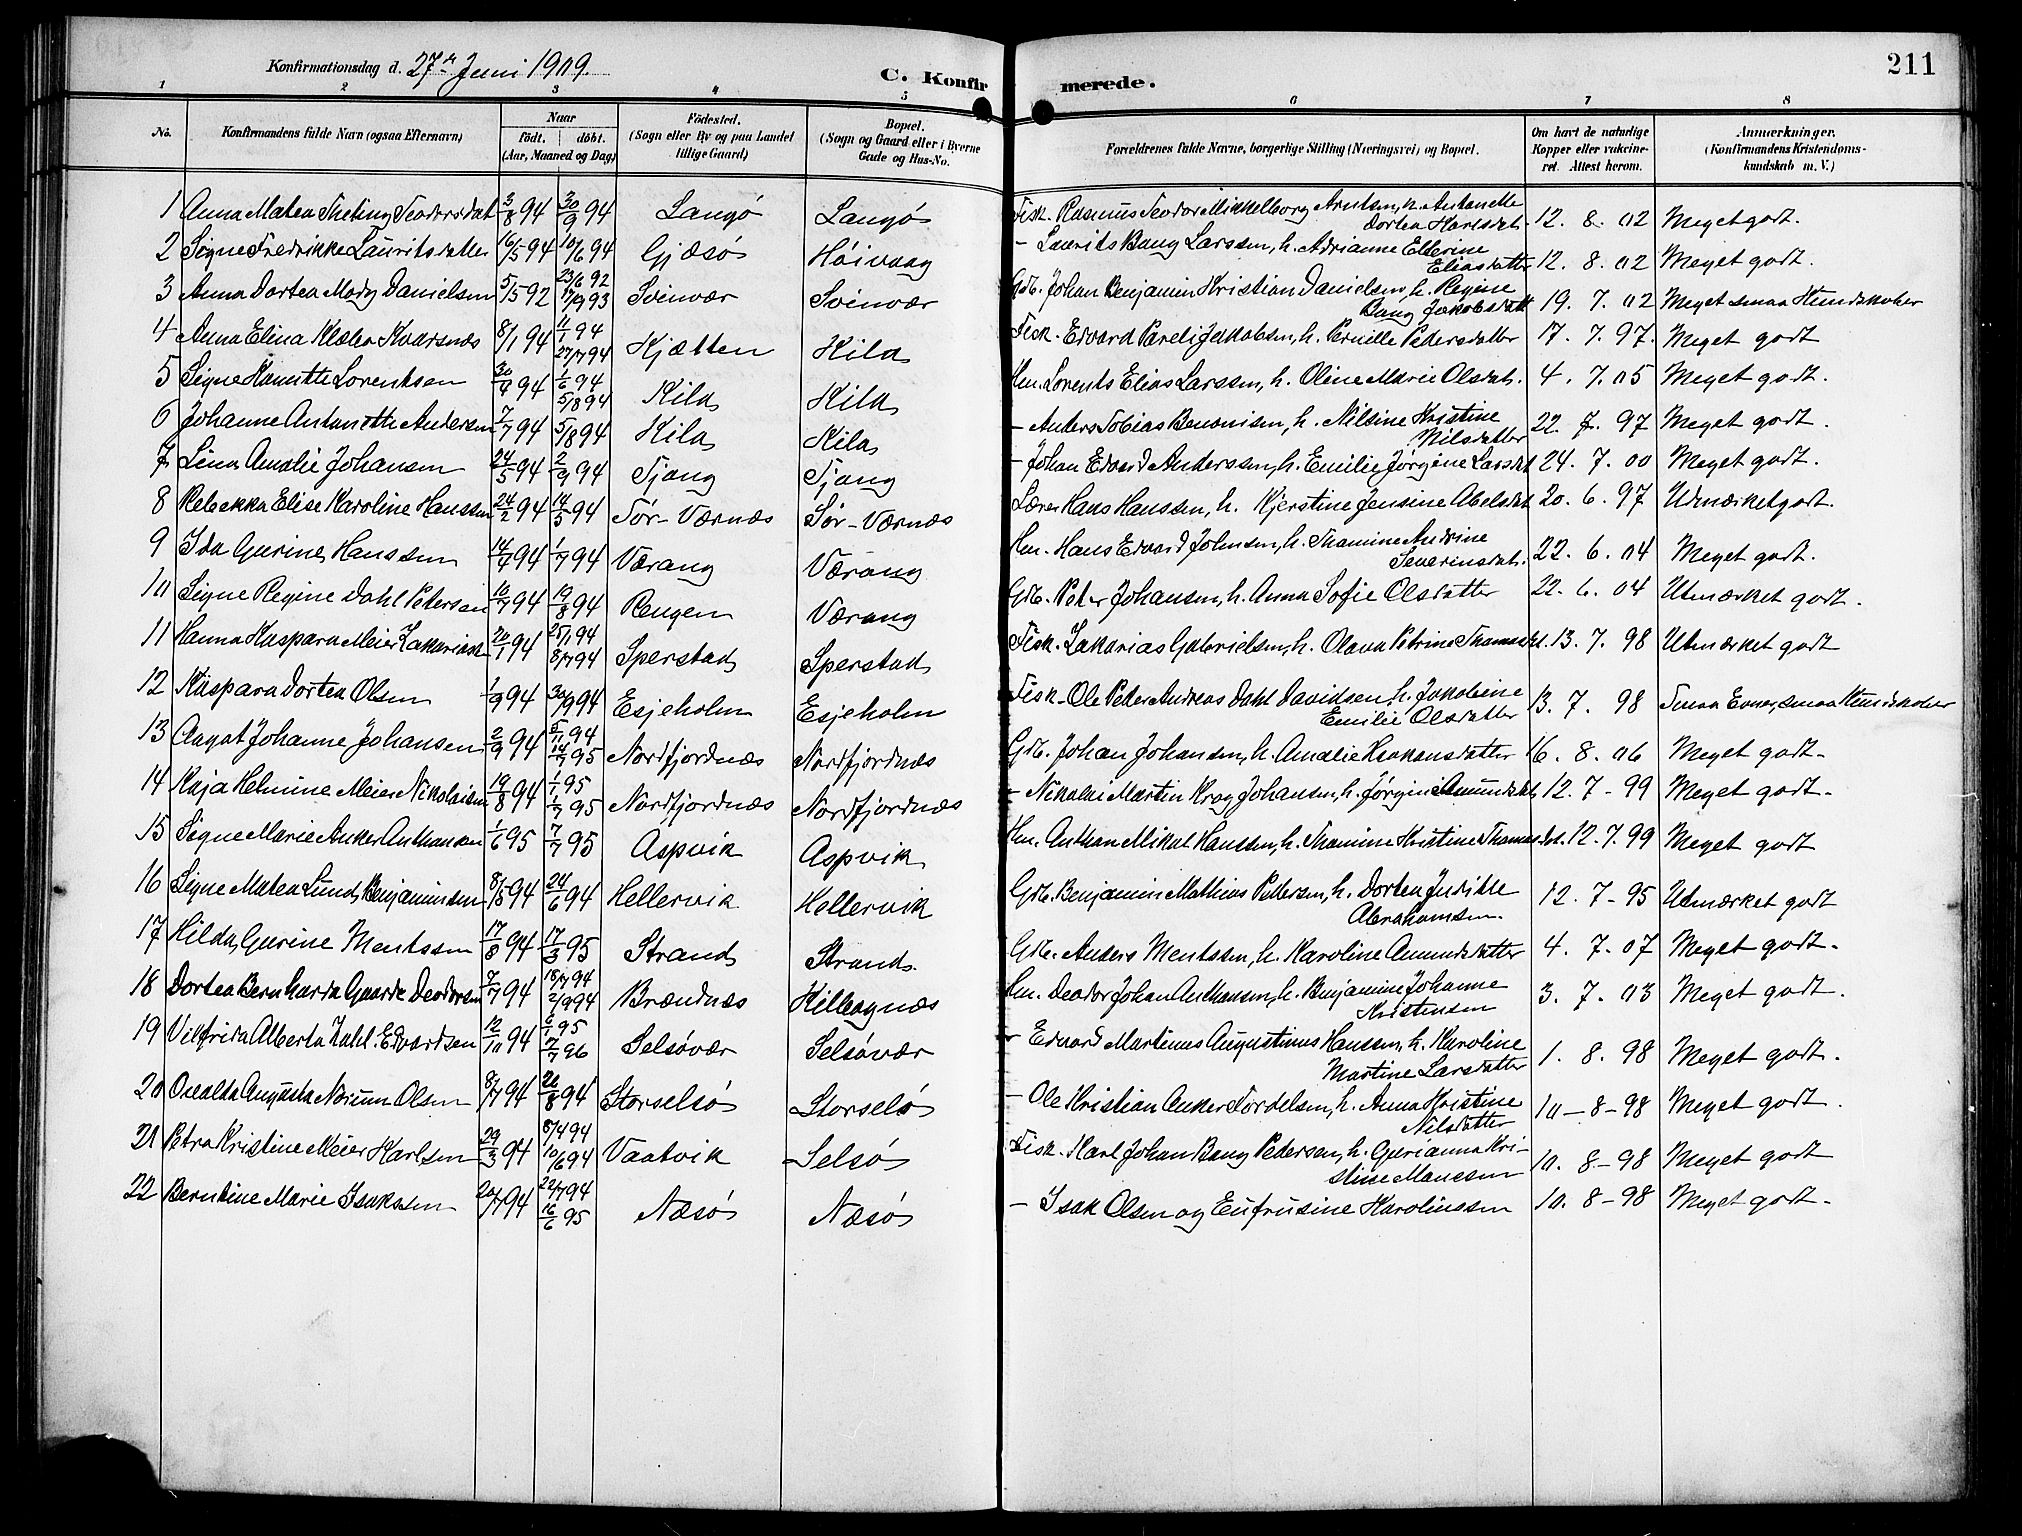 211
Konfirmationsdag d. 27de Juni 1909.
C. Konfirmerede.
1 2 3 4 5 6 7 8
No. Konfirmandens fulde Navn (ogsaa Efternavn) Naar født. døbt. (Aar, Maaned og Dag) Fødested. (Sogn eller By og paa Landet tillige Gaard) Bopæl. (Sogn og Gaard eller i Byerne Gade og Hus-No. Forældrenes fulde Navne, borgerlige Stilling (Næringsvei) og Bopæl. Om havt de naturlige Kopper eller vakcineret. Attest herom. Anmærkninger. (Konfirmandens Kristendomskundskab m. V.)
1 Anna Matea Theting Teodorsdat 3/8 94 30/9 94 Langø Langø Fisk. Rasmus Teodor Mikkelborg Arntsen, h. Antonette Dortea Karlsdat. 12. 8. 02 Meget godt.
2 Signe Fredrikke Lauritsdatter 16/5 94 10/6 94 Gjæsø Høivaag - Laurits Bang Larssen, h. Adrianne Ellerine Eliasdatter 12. 8. 02 Meget godt.
3 Anna Dortea Mody Danielsen 5/5 92 23/6 92 17/9 93 Svinvær Svinvær Gdb. Johan Benjamin Kristian Danielsen, h. Regine Bang Jakobsdatt 19. 7. 02 Meget smaa Kundskaber
4 Anna Elina Klæbo Kvarsnæs 8/1 94 11/1 94 27/7 94 Kjætten Kila Fisk. Edvard Pareli Jakobsen, h. Pernille Pedersdatter 17. 7. 97. Meget godt
5 Signe Hanette Lorentsen 30/4 94 1/6 94 5/8 94 Kila Kila Hm. Lorents Elias Larssen, h. Oline Marie Olsdat. 4. 7. 05 Meget godt.
6 Johanne Antonette Andersen 7/7 94 5/8 94 Kila Kila - Anders Tobias Benonisen, h. Nilsine Kristine Nilsdatter 22. 7. 97 Meget godt.
7 Lina Amalie Johansen 24/5 94 2/9 94 Tjang Tjang - Johan Edvard Anderssen, h. Emilie Jørgine Larsdat 24. 7. 00 Meget godt.
8 Rebekka Elise Karoline Hanssen 24/2 94 14/5 94 Sør-Værnæs Sør-Værnæs Lærer Hans Hanssen, h. Kjerstine Jensine Abelsdat 20. 6. 97 Udmærket godt.
9 Ida Gurine Hanssen 14/4 94 1/7 94 Værang Værang Hm. Hans Edvard Johnsen, h. Thamine Andrine Severinsdat. 22. 6. 04 Meget godt.
10 Signe Regine Dahl Petersen 10/7 94 19/8 94 Rengen Værang Gdb. Peter Johansen, h. Anna Sofie Olsdatter 22. 6. 04 Utmærket godt.
11 Hanna Kaspara Meier Zakariasen 20/1 94 25/1 94 8/7 94 Sperstad Sperstad Fisk. Zakarias Gabrielsen, h. Olava Petrine Thomasdat. 13. 7. 98 Utmærket godt
12 Kaspara Dortea Olsen 1/9 94 30/9 94 Esjeholm Esjeholm Fisk. Ole Peder Andreas Dahl Davidsen, h. Jakobine Emilie Olsdatter 13. 7. 98 Smaa Evner, smaa Kundskaber
13 Aagot Johanne Johansen 2/9 94 5/11 94 14/7 95 Nordfjordnæs Nordfjordnæs Gdb. Johan Johansen, h. Amalie Haakonsdatter 16. 8. 06 Meget godt-
14 Kaja Helmine Meier Nikolaisen 19/8 94 1/1 95 1/7 95 Nordfjordnæs Nordfjordnæs - Nikolai Martin Krog Johansen, h. Jørgine Amundsdat 12. 7 - 99 Meget godt-
15 Signe Marie Anker Anthonsen 1/6 95 7/7 95 Aspvik Aspvik Hm. Anthon Mikal Hanssen, h. Thamine Kristine Thomasdat. 12. 7. 99 Meget godt
16 Signe Matea Lund Benjaminsen 8/5 94 24/6 94 Hellervik Hellervik Gdb. Benjamin Mathias Pettersen, h. Dortea Judithe Abrahamsen. 12. 7 - 95 Utmærket godt
17 Hilda Gurine Mentssen 17/8 94 17/3 95 Strand Strand. Gdb. Anders Mentssen, h. Karoline Amundsdatter 4. 7. 07 Meget godt-
18 Dortea Bernharda Gaarde Deodorsen 7/7 94 18/7 94 2/9 94 Brændnæs Kilbognæs Hm. Deodor Johan Anthonsen, h. Benjamine Johanne Kristensen 3. 7. 03 Meget godt.
19 Vilfrida Alberta Zahl. Edvardsen 12/10 94 6/1 95 7/7 96 Selsøvær Selsøvær - Edvard Martinus Augustinus Hanssen, h. Karoline Martine Larsdatter 1. 8. 98 Meget godt.
20 Osvalda Augusta Norum Olsen 8/7 94 26/8 94 Storselsø Storselsø - Ole Kristian Anker Tordelsen, h. Anna Kristine Nilsdatter 10-8-98 Meget godt.
21 Petra Kristine Meier Karlsen 29/3 94 8/4 94 10/6 94 Vaatvik Selsø Fisk. Karl Johan Bang Pedersen, h. Gurianna Kristine Monessen 10. 8-98 Meget godt
22 Berntine Marie Isakssen 20/7 94 22/7 94 16/6 95 Næsø Næsø - Isak Olsen og Eufrusine Karolinssen 10. 8-98 Meget godt-